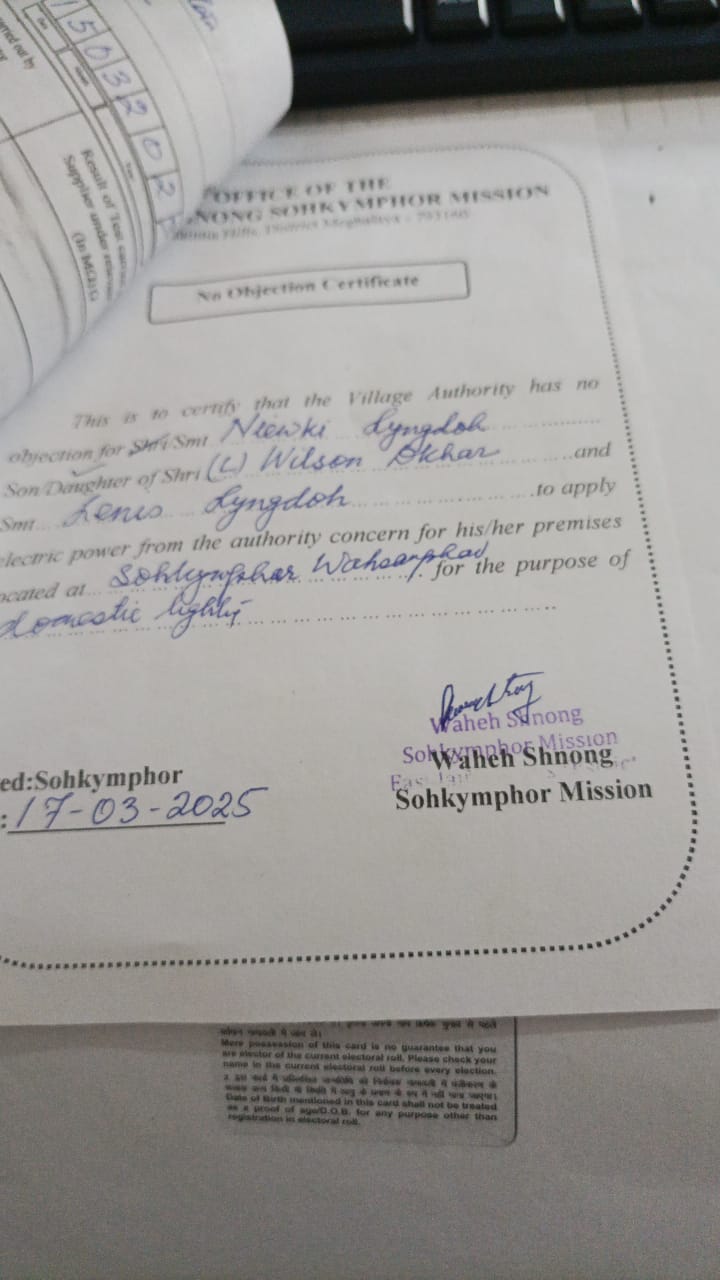 1503202
Result of Test
Supplier under
OFFICE OF THE
NONG SOHKYMPHOR MISSION
No Objection Certificate
This is to certify that the Village Authority has no
objection for Shri/Smt Niewki Lyngdoh
Son/Daughter of Shri (L) Wilson Dkhar and
Smt Lenis Lyngdoh to apply
electric power from the authority concern for his/her premises
ocated at Sohkymphor Wahsarphai for the purpose of
domestic lighting
Waheh Shnong
Sohkymphor Mission
Waheh Shnong
Sohkymphor Mission
ed:Sohkymphor
:17-03-2025
Mere possession of this card is no guarantee that you
are elector of the current electoral roll. Please check your
name in the current electoral roll before every election.
Date of Birth mentioned in this card shall not be treated
as a proof of age/D.O.B. for any purpose other than
registration in electoral roll.